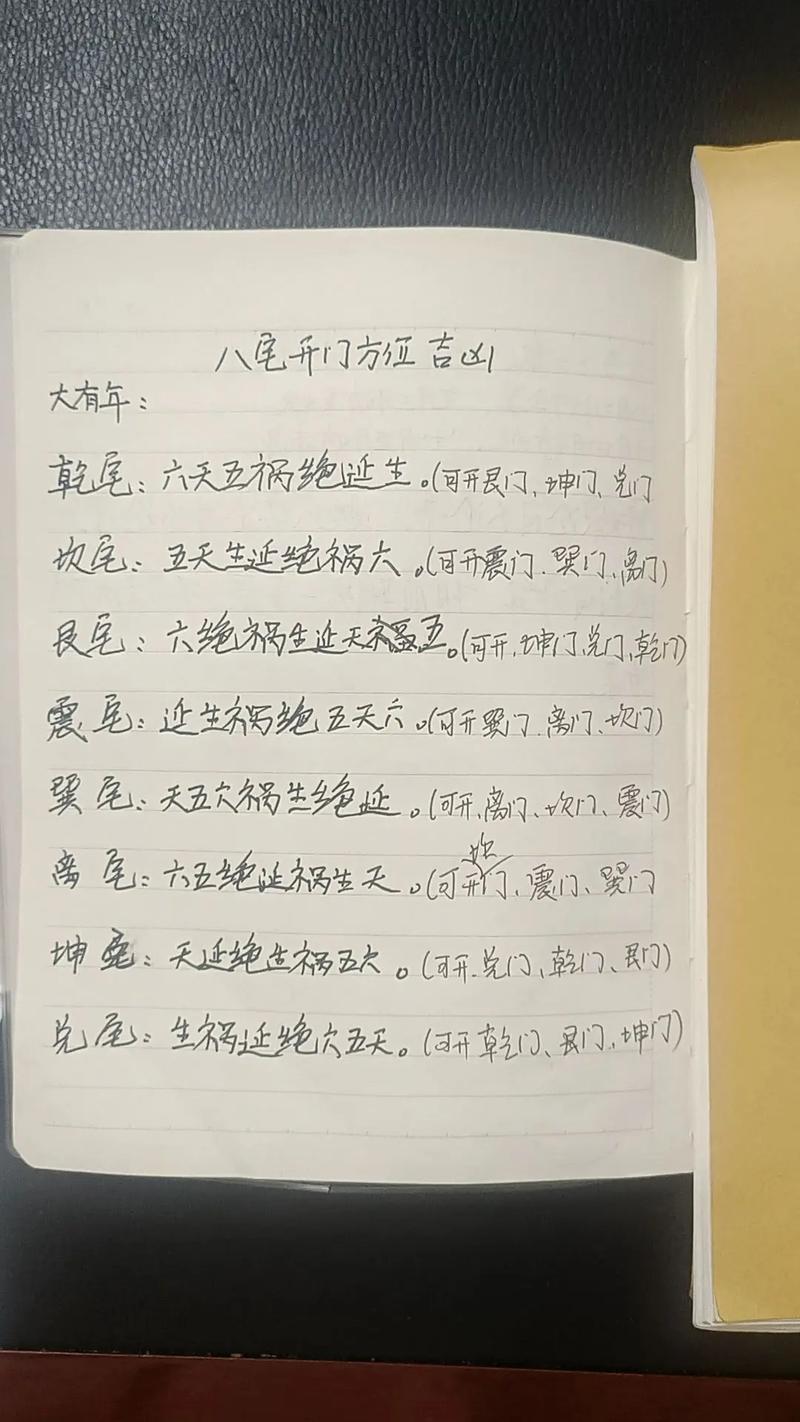 八尾开门方位吉凶
大有年：
乾尾：六天五祸绝延生。(可开艮门、坤门、兑门
坎尾：五天生延绝祸六。(可开震门、巽门、离门)
艮尾：六绝祸生延天五。(可开、坤门、兑门、乾门)
震尾：延生祸绝五天六。(可开巽门、离门、坎门)
巽尾：天五六祸生绝延。(可开、离门、坎门、震门)
离尾：六五绝延祸生天。(可开坎门、震门、巽门
坤尾：天延绝生祸五六。(可开、兑门、乾门、艮门)
兑尾：生祸延绝六五天。(可开乾门、艮门、坤门)